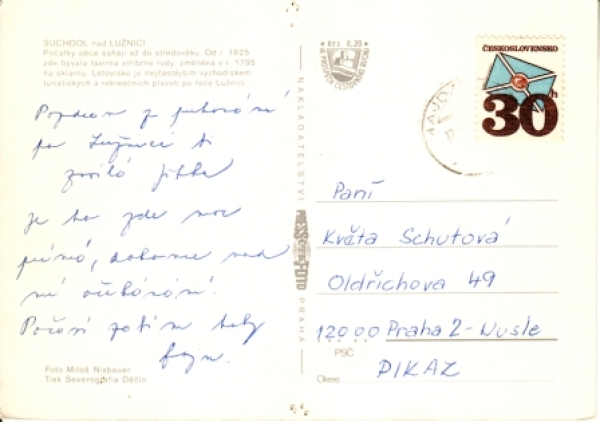 SUCHDOL nad LUŽNICÍ
Počátky obce sahají až do středověku. Od r. 1625
zde bývala tavírna stříbrné rudy, změněná v r. 1795
na sklárnu. Letovisko je nejčastějším východiskem
turistických a rekreačních plaveb po řece Lužnici.
Pozdrav z putování
po Lužnici ti
posílá Jitka
Je to zde moc
Počasí zatím taky
fajn.
Foto Miloš Nixbauer
Tisk Severografia Děčín
NAKLADATELSTVÍ
PRESSFOTO
PRAHA
Kčs 0,20
ČESKOSLOVENSKO
30h
Paní
Květa Schutová
Oldřichova 49
12000 Praha 2-Nusle
PSČ
PIKAZ
Okres